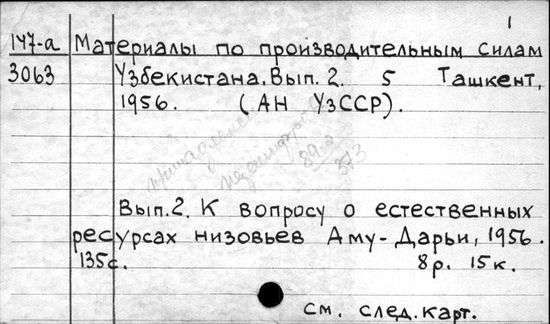 1
147-а Материалы по производительным силам
3063 Узбекистана. Вып. 2. 5 Ташкент,
1956. (АН УзССР).
89-2
373
Вып. 2. К вопросу о естественных
ресурсах низовьев Аму-Дарьи, 1956.
135с. 8р. 15к.
см. след. карт.